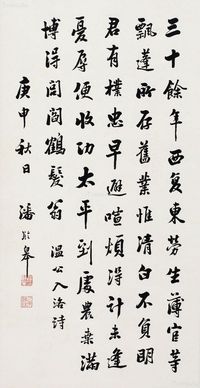 三十餘年西复東勞生薄宦等
飄蓬所存舊業惟清白不負明
君有樸忠早避喧煩得計未逢
憂辱便收功太平到處農桑滿
博得閭閻鶴髮翁 温公入洛詩
庚申秋日 潘齡皋